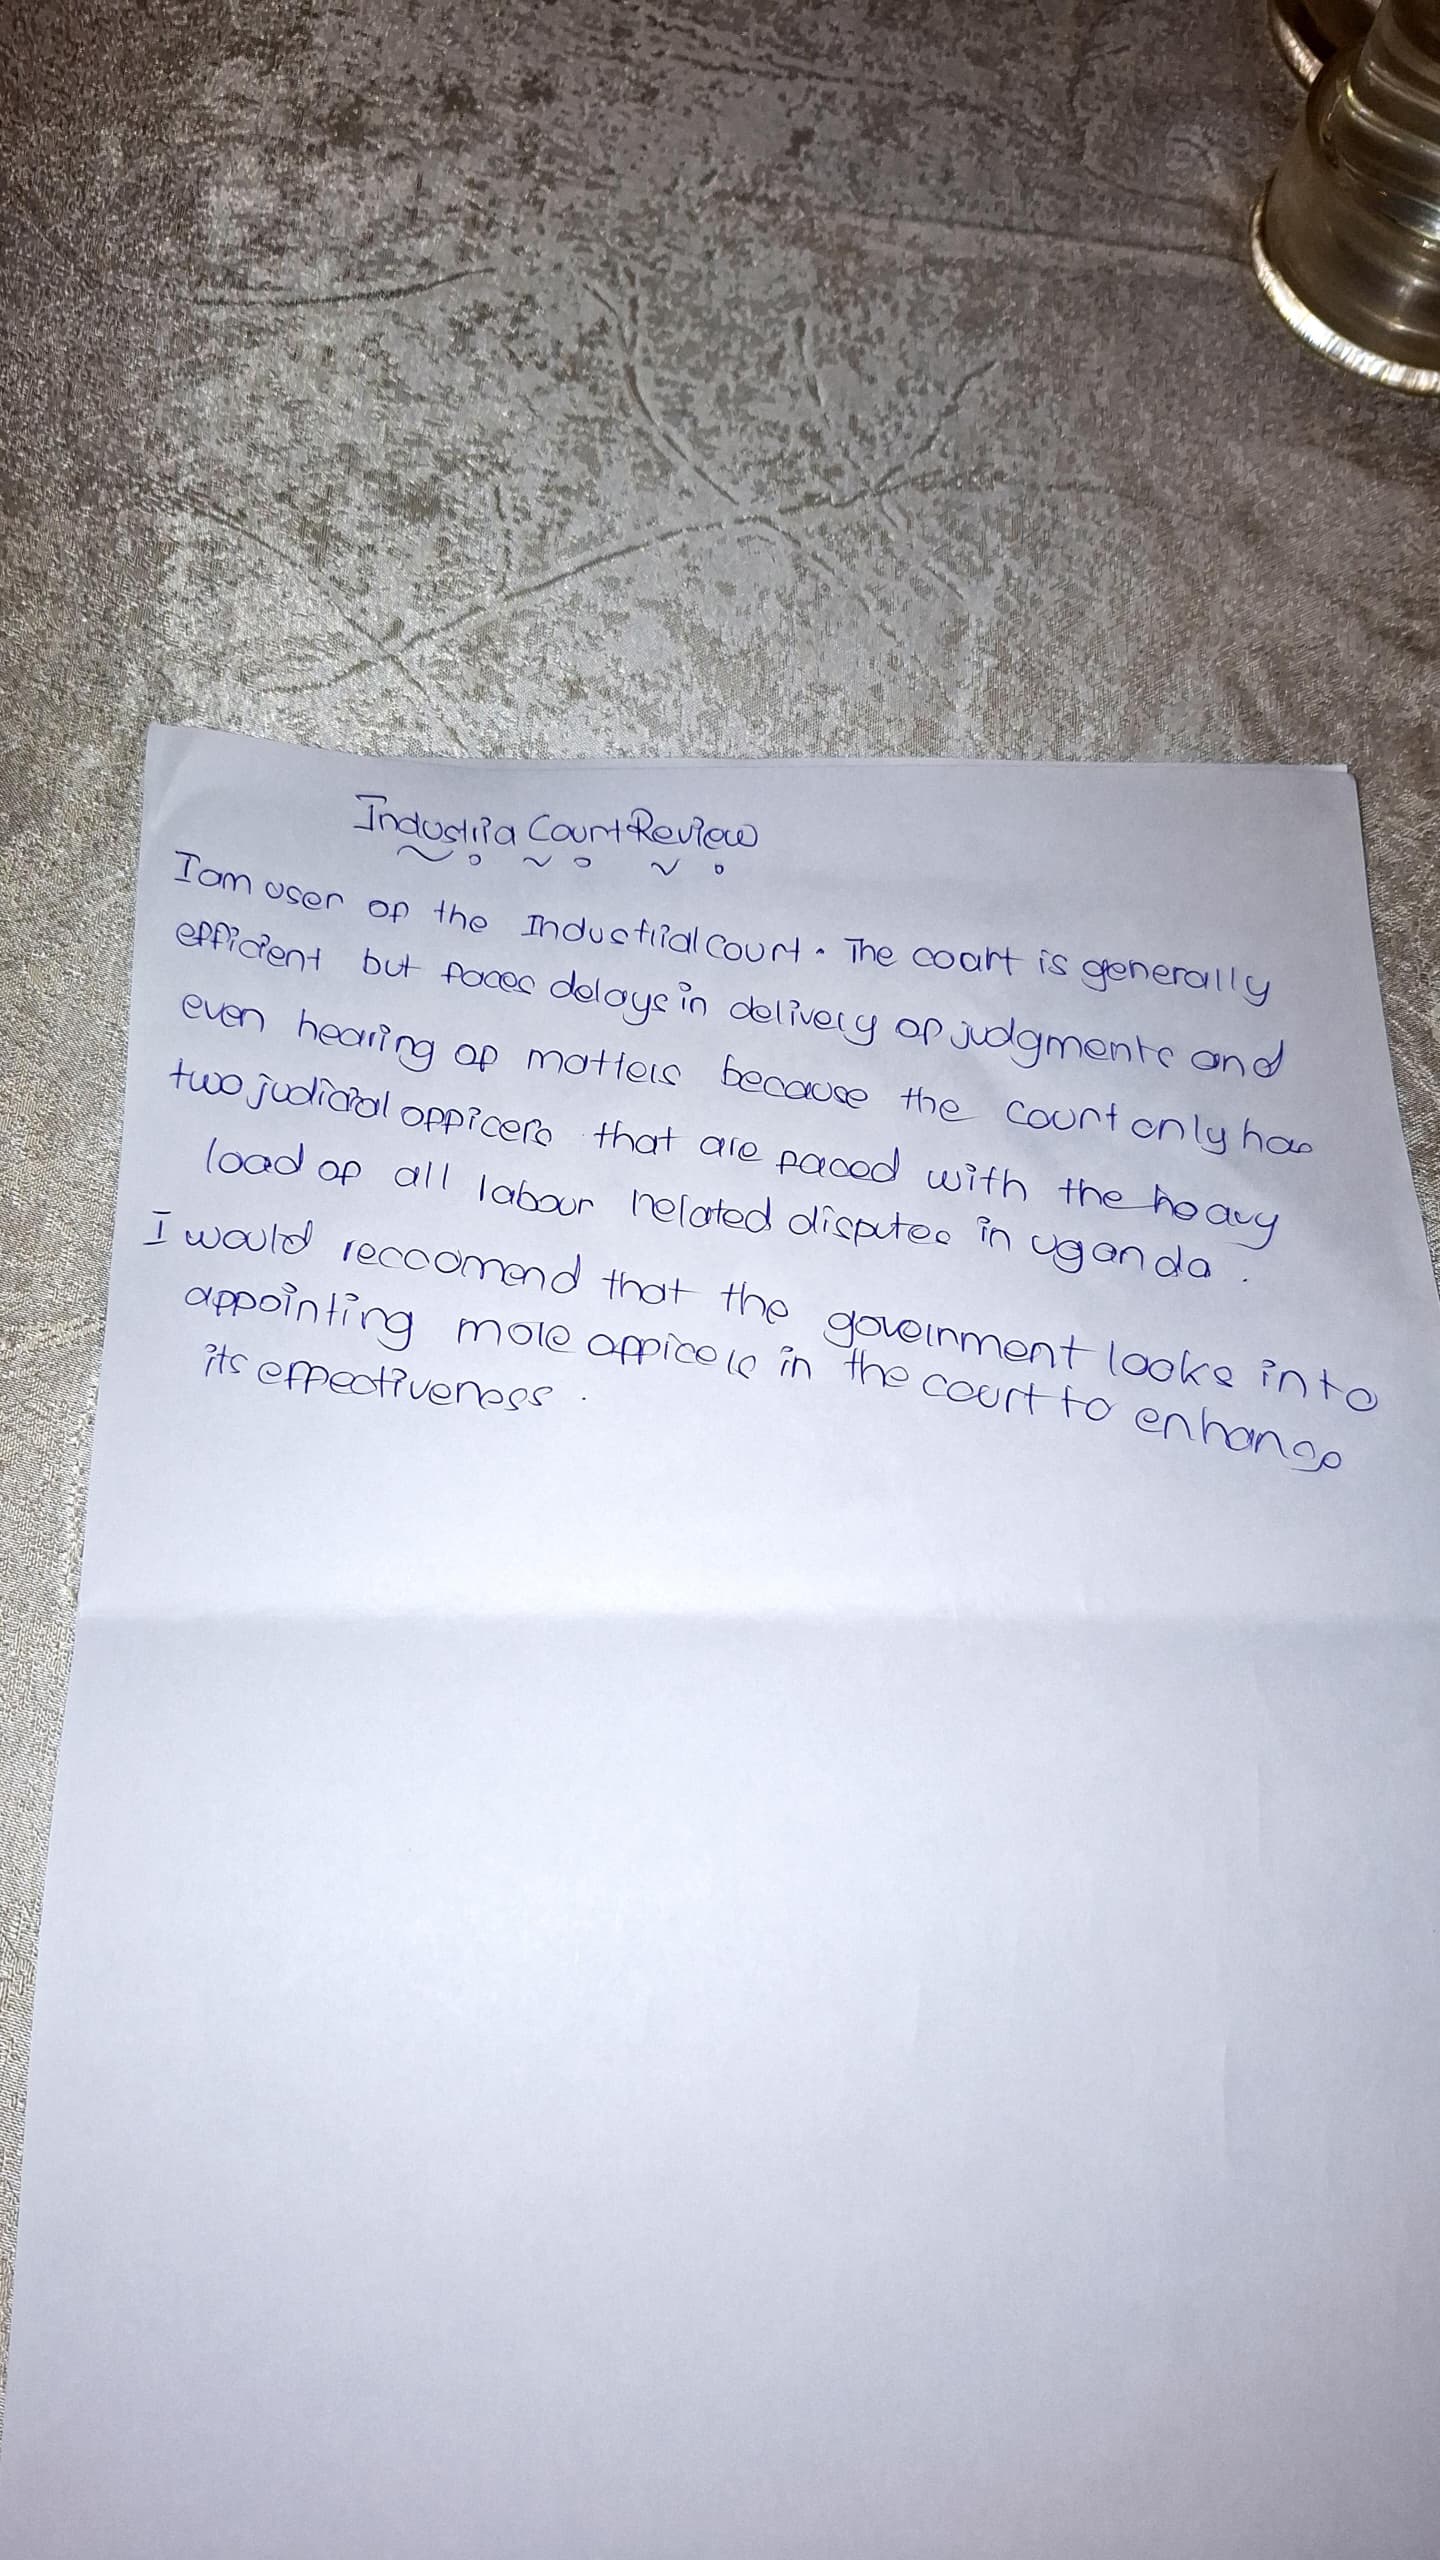 Industria Court Review
I am user of the Industrial Court. The court is generally
efficient but faces delays in delivery of judgments and
even hearing of matters because the court only has
two judicial officers that are faced with the heavy
load of all labour related disputes in uganda.
I would reccomend that the government looks into
appointing more officers in the court to enhance
its effectiveness.